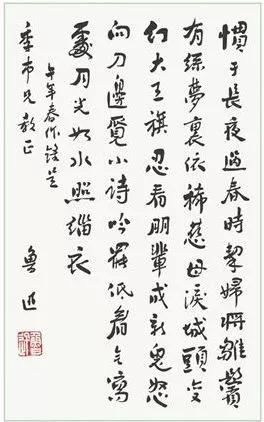 慣于長夜過春時挈婦將雛鬢
有絲夢裏依稀慈母淚城頭變
幻大王旗忍看朋輩成新鬼怒
向刀邊覓小詩吟罷低眉无寫
處月光如水照緇衣
午年春作錄呈
季市兄教正
魯迅